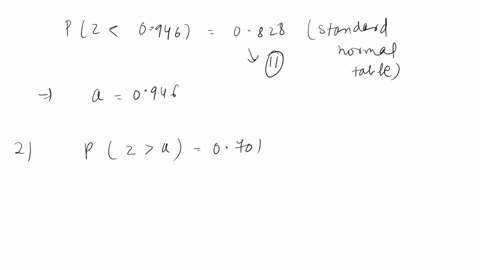 P ( z < 0.946) = 0.828 (standard
normal
table)
↳ (11)
⇒ a = 0.946
2) P ( z > a) = 0.701